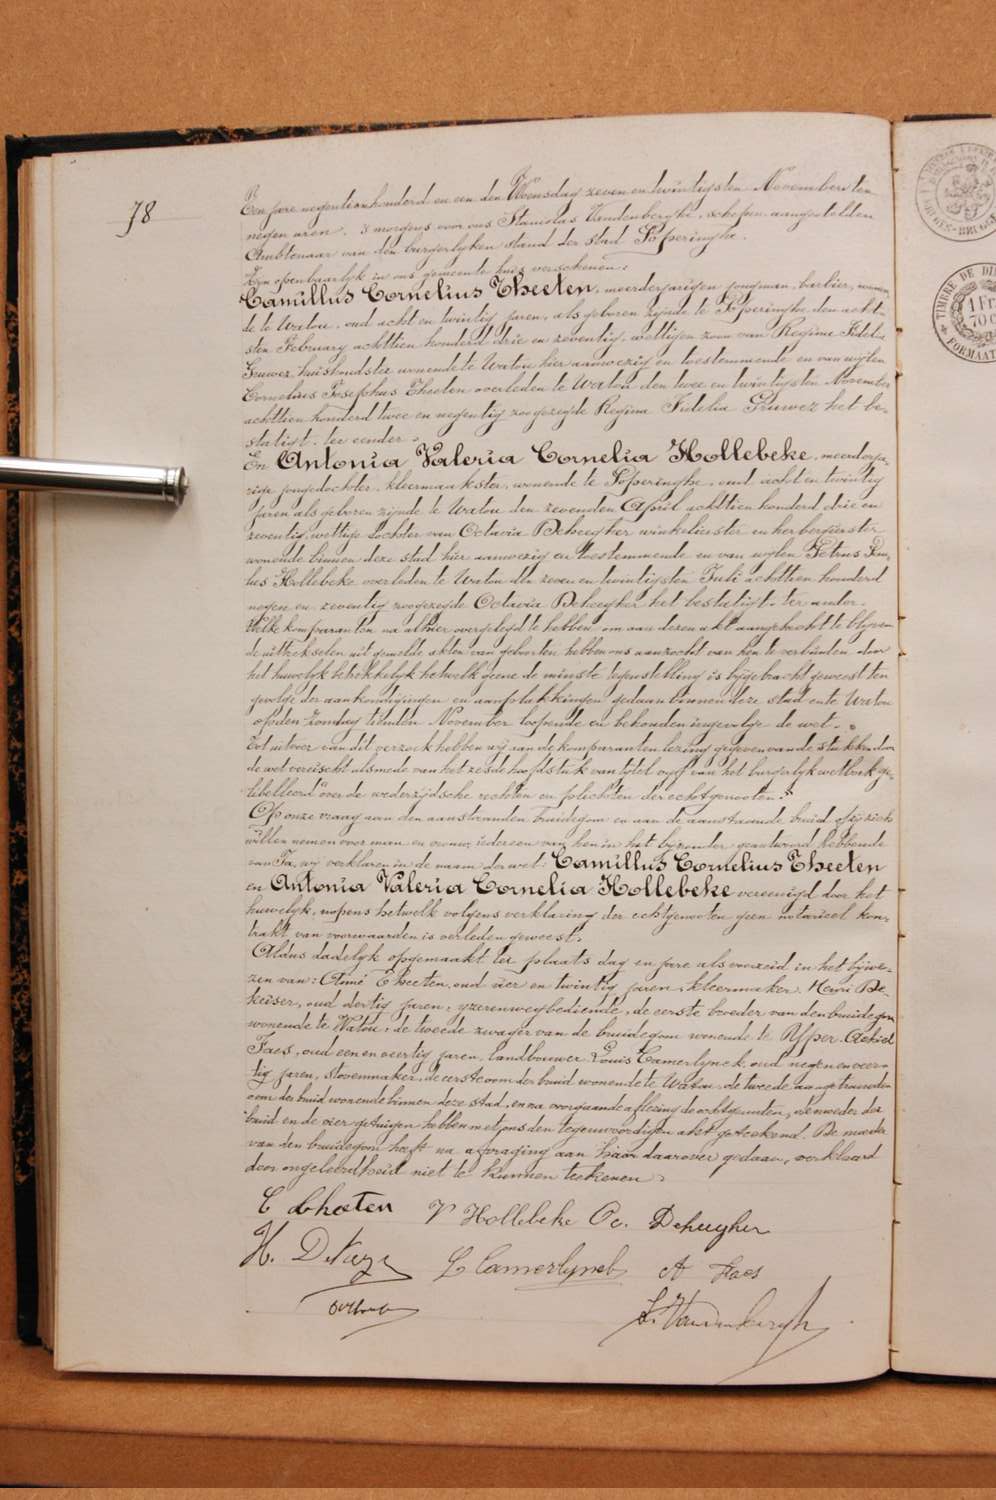 78
Ten jare negentienhonderd en een den Woensdag zeven en twintigsten November ten
negen uren 's morgens voor ons Stanislas Vandenberghe, schepen aangestelden
Ambtenaar van den burgerlyken stand der stad Poperinghe.
Zyn openbaarlyk in ons gemeente huis verschenen:
Camillus Cornelius Theeten, meerderjarigen jongman, barbier, wonen-
de te Watou, oud acht en twintig jaren, als geboren zynde te Poperinghe, den acht-
sten February achttien honderd drie en zeventig, wettigen zoon van Regina Fidelia
Gruwez huishoudster wonende te Watou, hier aanwezig en toestemmende en van wylen
Cornelius Josephus Theeten overleden te Watou den twee en twintigsten November
achttien honderd twee en negentig zoo gezegde Regina Fidelia Gruwez het be-
statigt. ter eender.
En Antonia Valeria Cornelia Hollebeke, meerderja-
rige jongedochter, kleermaakster, wonende te Poperinghe, oud acht en twintig
jaren als geboren zynde te Watou den zevenden April achttien honderd drie en
zeventig, wettige dochter van Octavia Deheegher winkelierster en herbergierster
wonende binnen deze stad hier aanwezig en toestemmende en van wylen Petrus
Hollebeke overleden te Watou den zeven en twintigsten Juli achttien honderd
negen en zeventig zoo gezegde Octavia Deheegher het bestatigt. ter ander.
Welke komparanten na alhier overgelegd te hebben om aan dezen akt aangehecht te blyven
de uittrekselen uit gemelde akten van geboorten hebben ons aanzocht van hen te verbinden door
het huwelyk betrekkelyk hetwelk geene de minste tegenstelling is bygebracht geweest ten
gevolge der aankondigingen en aanplakkingen gedaan binnen deze stad en te Watou
op den Zondag tienden November loopende en behouden ingevolge de wet.
Tot uitvoer van dit verzoek hebben wy aan de komparanten lezing gegeven van de stukken door
de wet vereischt alsmede van het zesde hoofdstuk van titel vyf van het burgerlyk wetboek ge-
libelleerd "over de wederzydsche rechten en plichten der echtgenooten."
Op onze vraag aan den aanstaanden bruidegom en aan de aanstaande bruid of zy zich
willen nemen voor man en vrouw, iedereen van hen in het byzonder geantwoord hebbende
van Ja, wy verklaren in de naam der wet: Camillus Cornelius Theeten
en Antonia Valeria Cornelia Hollebeke vereenigd door het
huwelyk, nopens hetwelk volgens verklaring der echtgenooten geen notarieel kon-
trakt van voorwaarden is verleden geweest.
Aldus dadelyk opgemaakt ter plaats dag en jare als voorzeid in het bywe-
zen van: Aimé Theeten, oud vier en twintig jaren, kleermaker. Henri De-
keiser, oud dertig jaren, yzerenwegbediende, de eerste broeder van den bruidegom
wonende te Watou, de tweede zwager van de bruidegom wonende te Ypper. Achiel
Faes, oud een en veertig jaren, landbouwer. Louis Camerlynck oud negen en veer-
tig jaren, stovenmaker, de eerste oom der bruid wonende te Watou, de tweede aangetrouwden
oom der bruid wonende binnen deze stad, en na voorgaande aflezing de echtgenooten, de moeder der
bruid en de vier getuigen hebben met ons den tegenwoordigen akt geteekend. De moeder
van den bruidegom heeft na afvraging aan haar daarover gedaan, verklaard
door ongeleerdheid niet te kunnen teekenen.
C Theeten V Hollebeke Oc. Deheegher
H. L Camerlynck A Faes
S. Vandenbergh
TIMBRE DE
1 Fr
70 C
FORMAAT
BRUGES-BRUGGE